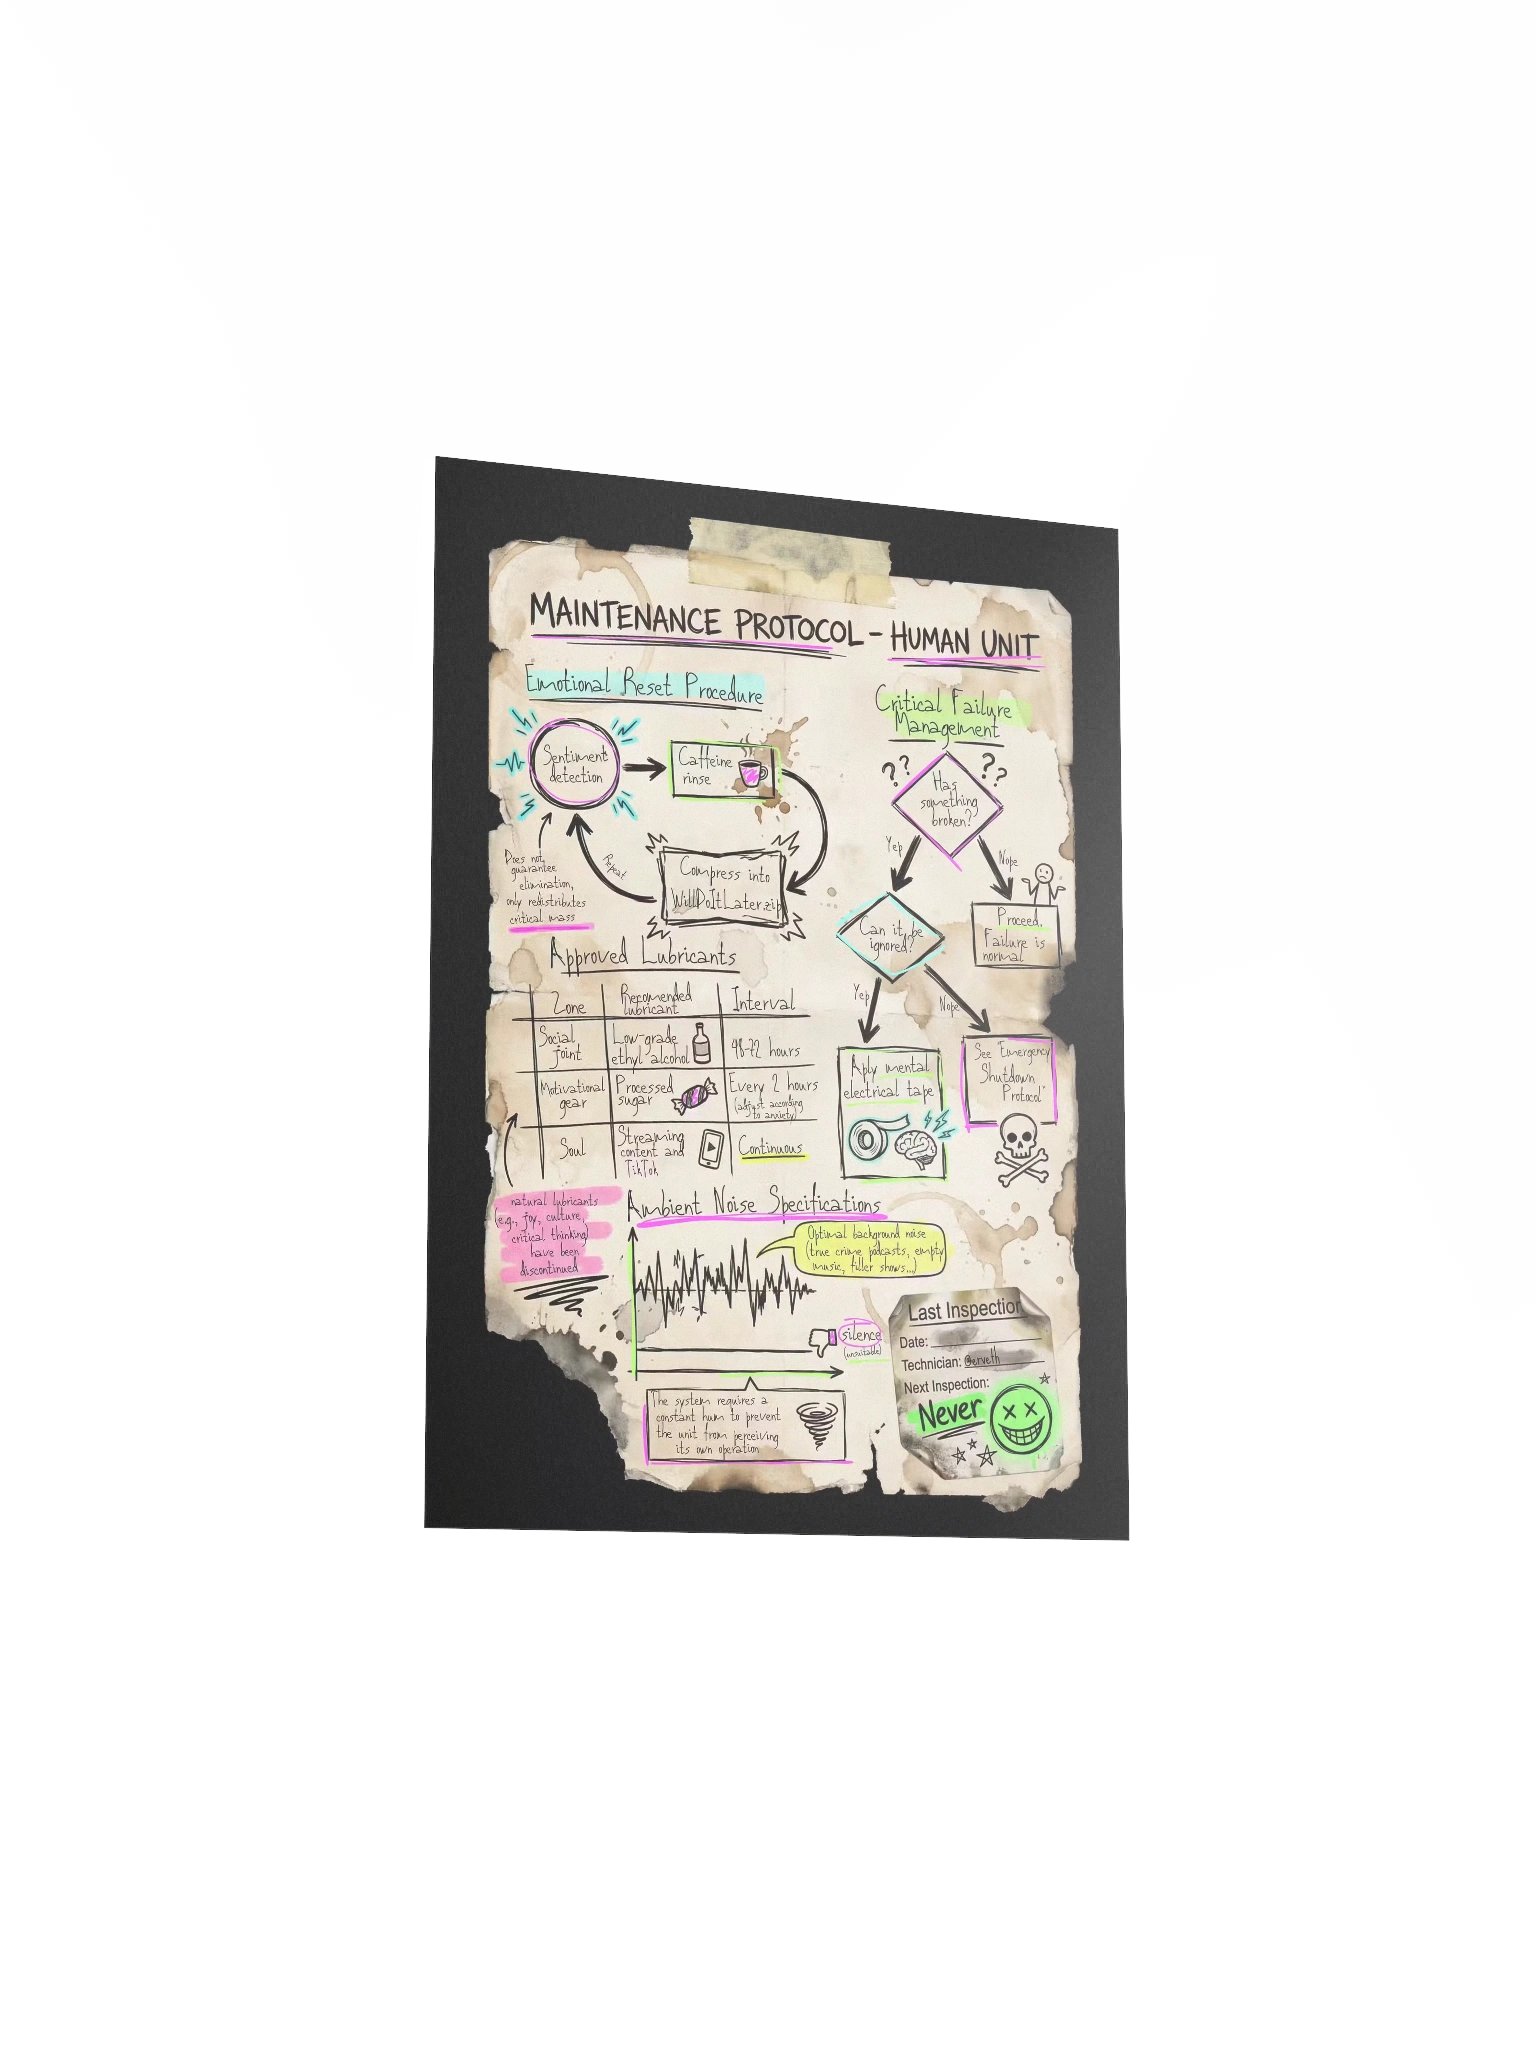 MAINTENANCE PROTOCOL - HUMAN UNIT
Emotional Reset Procedure
Sentiment
detection
Caffeine
rinse
Compress into
WillDoItLater.zip
Repeat
Does not
guarantee
elimination,
only redistributes
critical mass
Critical Failure
Management
??
??
Has
something
broken?
Yep
Nope
Can it be
ignored?
Proceed.
Failure is
normal
Yep
Nope
Aply mental
electrical tape
See "Emergency
Shutdown
Protocol"
Approved Lubricants
Zone
Recomended
lubricant
Interval
Social
joint
Low-grade
ethyl alcohol
48-72 hours
Motivational
gear
Processed
sugar
Every 2 hours
(adjust according
to anxiety)
Soul
Streaming
content and
TikTok
Continuous
natural lubricants
(e.g., joy, culture,
critical thinking)
have been
discontinued
Ambient Noise Specifications
Optimal background noise
(true crime podcasts, empty
music, filler shows...)
silence
(unsuitable)
The system requires a
constant hum to prevent
the unit from perceiving
its own operation
Last Inspection
Date:
Technician: @erveth
Next Inspection:
Never